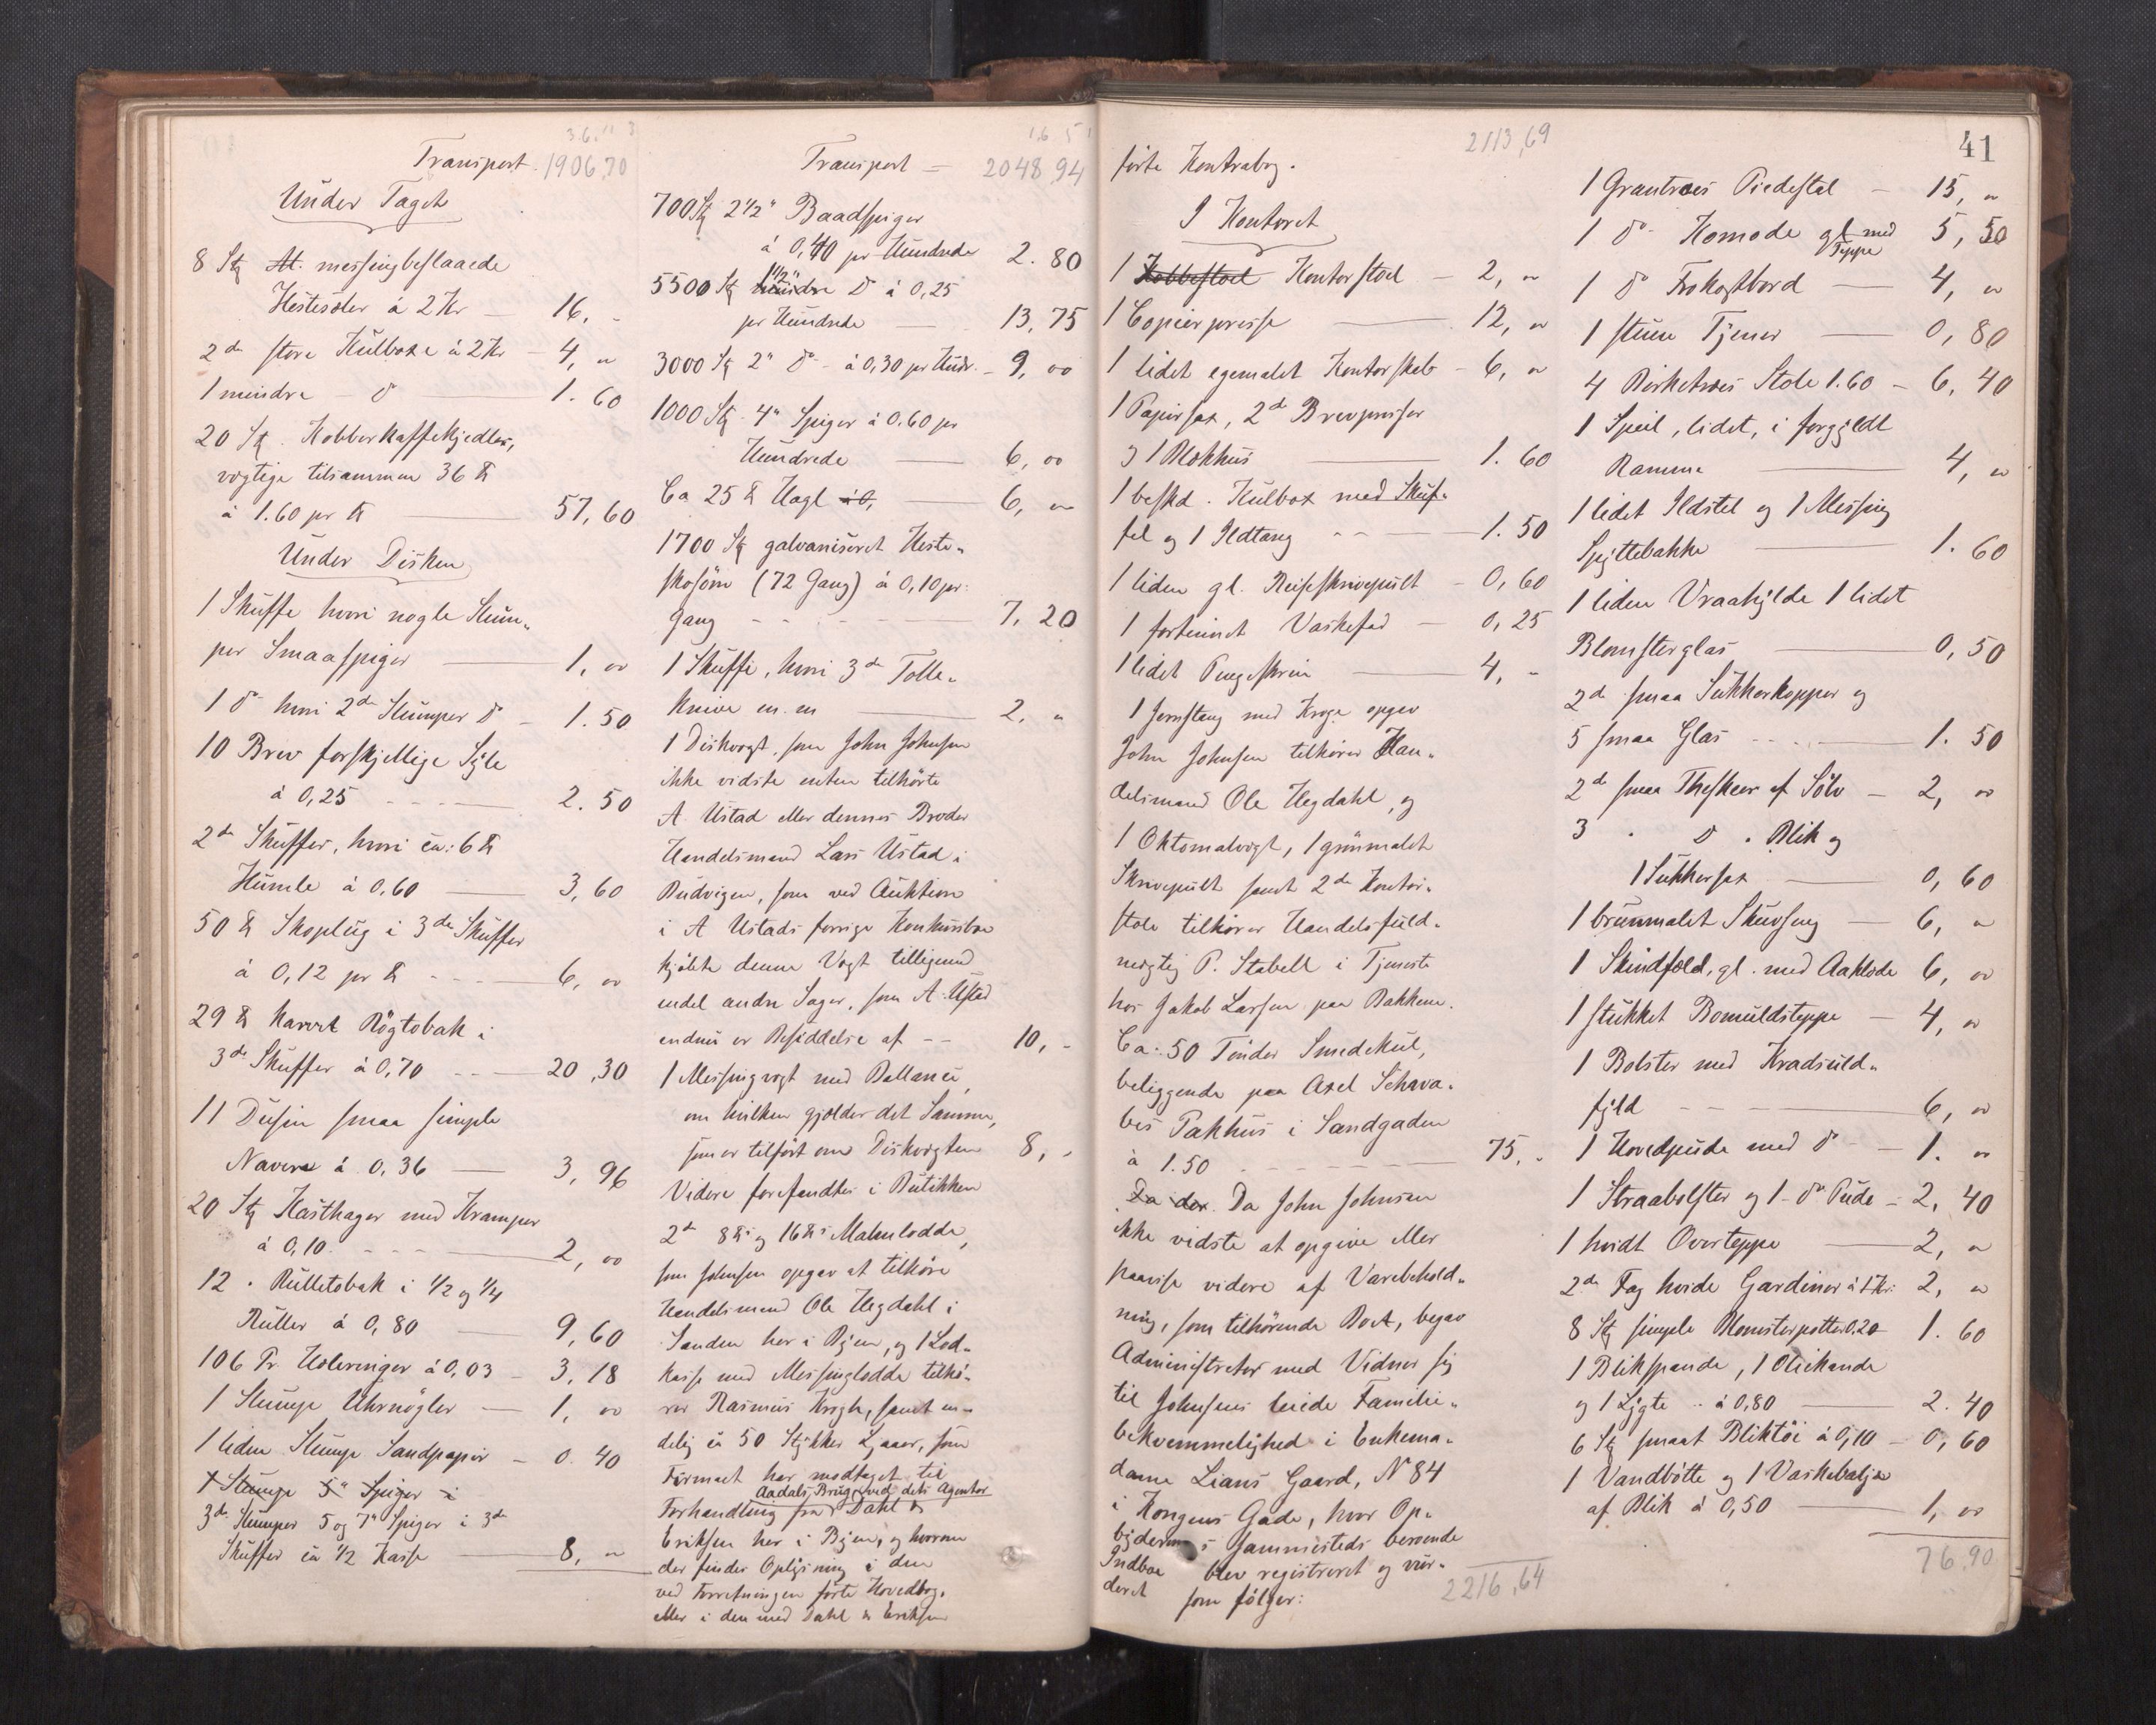 Transport 1906,70
Under Taget
8 Stk messingbeslaaede
Hestesöler á 2 Kr — 16, -
2de store Kulboxe á 2 Kr — 4, "
1 mindre — do 1. 60
20 Stk. Kobberkaffekjedler,
vægtige tilsammen 36 ℔
á 1.60 pr ℔ — 57,60
Under Disken
1 Skuffe hvori nogle Stum-
per Smaaspiger — 1, 00
1 do hvori 2de Stumper do — 1. 50
10 Brev forskjellige Syle
á 0,25 — 2. 50
2de Skuffer, hvori ca: 6 ℔
Humle á 0,60 — 3,60
50 ℔ Skoplug i 3de Skuffer
á 0,12 pr ℔ — 6, 00
29 ℔ karvet Røgtobak i
3de Skuffer á 0,70 — 20,30
11 Dusin smaa simple
Navere á 0,36 — 3, 96
20 Stk Kasthager med Kramper
á 0,10 — 2, 00
12 " Rulletobak i 1/2 og 1/4
Ruller á 0,80 — 9,60
106 Pr. Uoleringer á 0,03 — 3, 18
1 Stump Uhrnøgler — 1, 00
1 liden Stump Sandpapir — 0. 40
1 Stump 5" Spiger i
3de Stumper 5 og 7" Spiger i 3de
Skuffer ca 1/2 Kasse — 8, "
Transport — 2048,94
700 Stk 2 1/2" Baadspiger
á 0,40 pr Hundrede 2. 80
5500 Stk mindre 1 1/2" do á 0,25
pr Hundrede — 13,75
3000 Stk 2" do — á 0,30 pr Hundr. — 9, 00
1000 Stk 4" Spiger á 0.60 pr
Hundrede — 6, 00
Ca 25 ℔ Hagl á 0, — 6, "
1700 Stk galvaniseret Heste-
skosöm (72 Gang) á 0,10 pr:
Gang — 7, 20
1 Skuffe, hvori 3de Tolle-
knive m. m — 2, "
1 Diskvægt, som John Johnsen
ikke vidste enten tilhörte
A. Ustad eller dennes Broder
Handelsmand Lars Ustad i
Budvigen, som ved Auktion
i A Ustads forrige Konkursbo
kjöbte denne Vægt tilligemed
endel andre Sager, som A. Ustad
endnu er Besiddelse af — 10, -
1 Messingvægt med Ballance,
om hvilken gjælder det Samme,
som er tilført om Diskvægten 8, -
Videre forefandtes i Butikken
2de 8 ℔s og 16 ℔s Malmlodde,
som Johnsen opgav at tilhöre
Handelsmand Ole Hegdahl i
Sanden her i Byen, og 1 Lod-
kasse med Messinglodde tilhö-
rer Rasmus Krogh, samt en-
delig ca 50 Stykker Ljaaer, som
Firmaet har modtaget til
Aadals Brug ved dets Agenter
Forhandling fra Dahl &
Eriksen her i Byen, og hvorom
der findes Oplysning i den
ved Forretningen førte Hovedbog.
eller i den med Dahl & Eriksen
2113,69
41
førte Kontrabog.
I Kontoret
1 Kobbestol Kontorstol — 2, "
1 Copierpresse — 12, "
1 lidet egemalet Kontorskab — 6, "
1 Papirsax, 2de Brevpresser
og 1 Blækhus — 1. 60
1 beskd. Kulbox med Skuf-
fel og 1 Ildtang — 1. 50
1 liden gl. Reiseskrivepult — 0, 60
1 fortinnet Vaskefad — 0, 25
1 lidet Pengeskrin — 4, -
1 Jernstang med Kroge opgav
John Johnsen tilhörer Han-
delsmand Ole Hegdahl, og
1 Oktomalvægt, 1 grönmalet
Skrivepult samt 2de Kontor-
stole tilhörer Handelsfuld-
mægtig P. Stabell i Tjeneste
hos Jakob Larsen paa Bakken.
Ca: 50 Tönder Smedekul,
beliggende paa Axel Schwa-
bes Pakhus i Sandgaden
á 1.50 — 75, -
Da der. Da John Johnsen
ikke vidste at opgive eller
paavise videre af Varebehold-
ning, som tilhörende Boet, begav
Administrator med Vidner sig
til Johnsens leiede Familie-
bekvemmelighed i Enkema-
dame Lians Gaard, N 84
i Kongens Gade, hvor Op-
byderens sammesteds beroende
Indbo blev registreret og vur-
deret som følger:
2216,64
1 Grantræs Piedestal — 15, "
1 do Komode gl med Teppe 5, 50
1 do Frokostbord — 4, "
1 stum Tjener — 0, 80
4 Birketræs Stole 1.60 — 6, 40
1 Speil, lidet, i forgyldt
Ramme — 4, "
1 lidet Ildstel og 1 Messing
Spyttebakke — 1. 60
1 liden Vraahylde 1 lidet
Blomsterglas — 0, 50
2de smaa Sukkerkopper og
5 smaa Glas — 1. 50
2de smaa Theskeer af Sölv — 2, 00
3 " do " Blik og
1 Sukkersax — 0, 60
1 brunmalet Skuvseng — 6, "
1 Skindfeld, gl. med Aaklæde 6, 00
1 stukket Bomuldsteppe — 4, "
1 Bolster med Kraduld-
fyld — 6, 00
1 Hovedpude med do — 1. 00
1 Straabolster og 1 do Pude — 2, 40
1 hvidt Overteppe — 2, "
2de Fag hvide Gardiner á 1 Kr: 2, "
8 Stk simple Blomsterpotter 0.20 1. 60
1 Blikspande, 1 Oliekande
og 1 Lygte á 0,80 — 2. 40
6 Stk smaat Bliktöi á 0,10 — 0, 60
1 Vandbötte og 1 Vaskebalje
af Blik á 0,50 — 1, 00
76,90